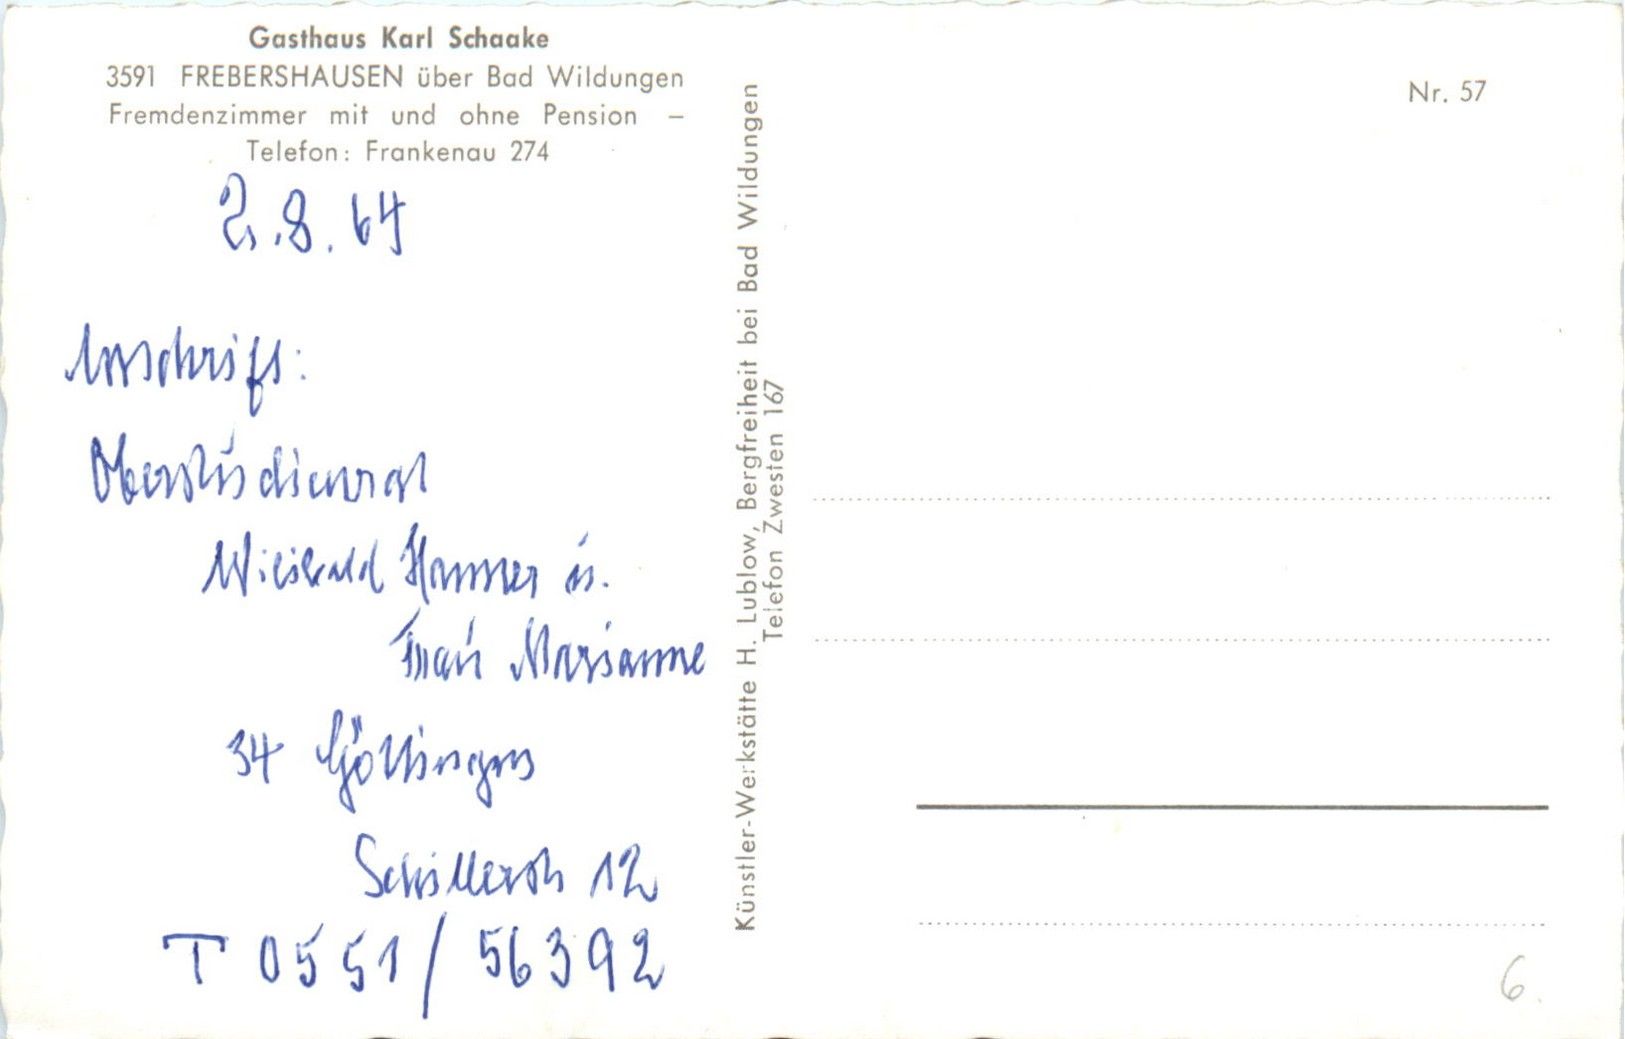 Gasthaus Karl Schaake
3591 FREBERSHAUSEN über Bad Wildungen
Fremdenzimmer mit und ohne Pension –
Telefon: Frankenau 274
2.8.64
Anschrift:
Oberstudienrat
Wiesbald Hammer u.
Frau Marianne
34 Göttingen
Schillerstr 12
T 0551/56392
Künstler-Werkstätte H. Lublow, Bergfreiheit bei Bad Wildungen
Telefon Zwesten 167
Nr. 57
6.